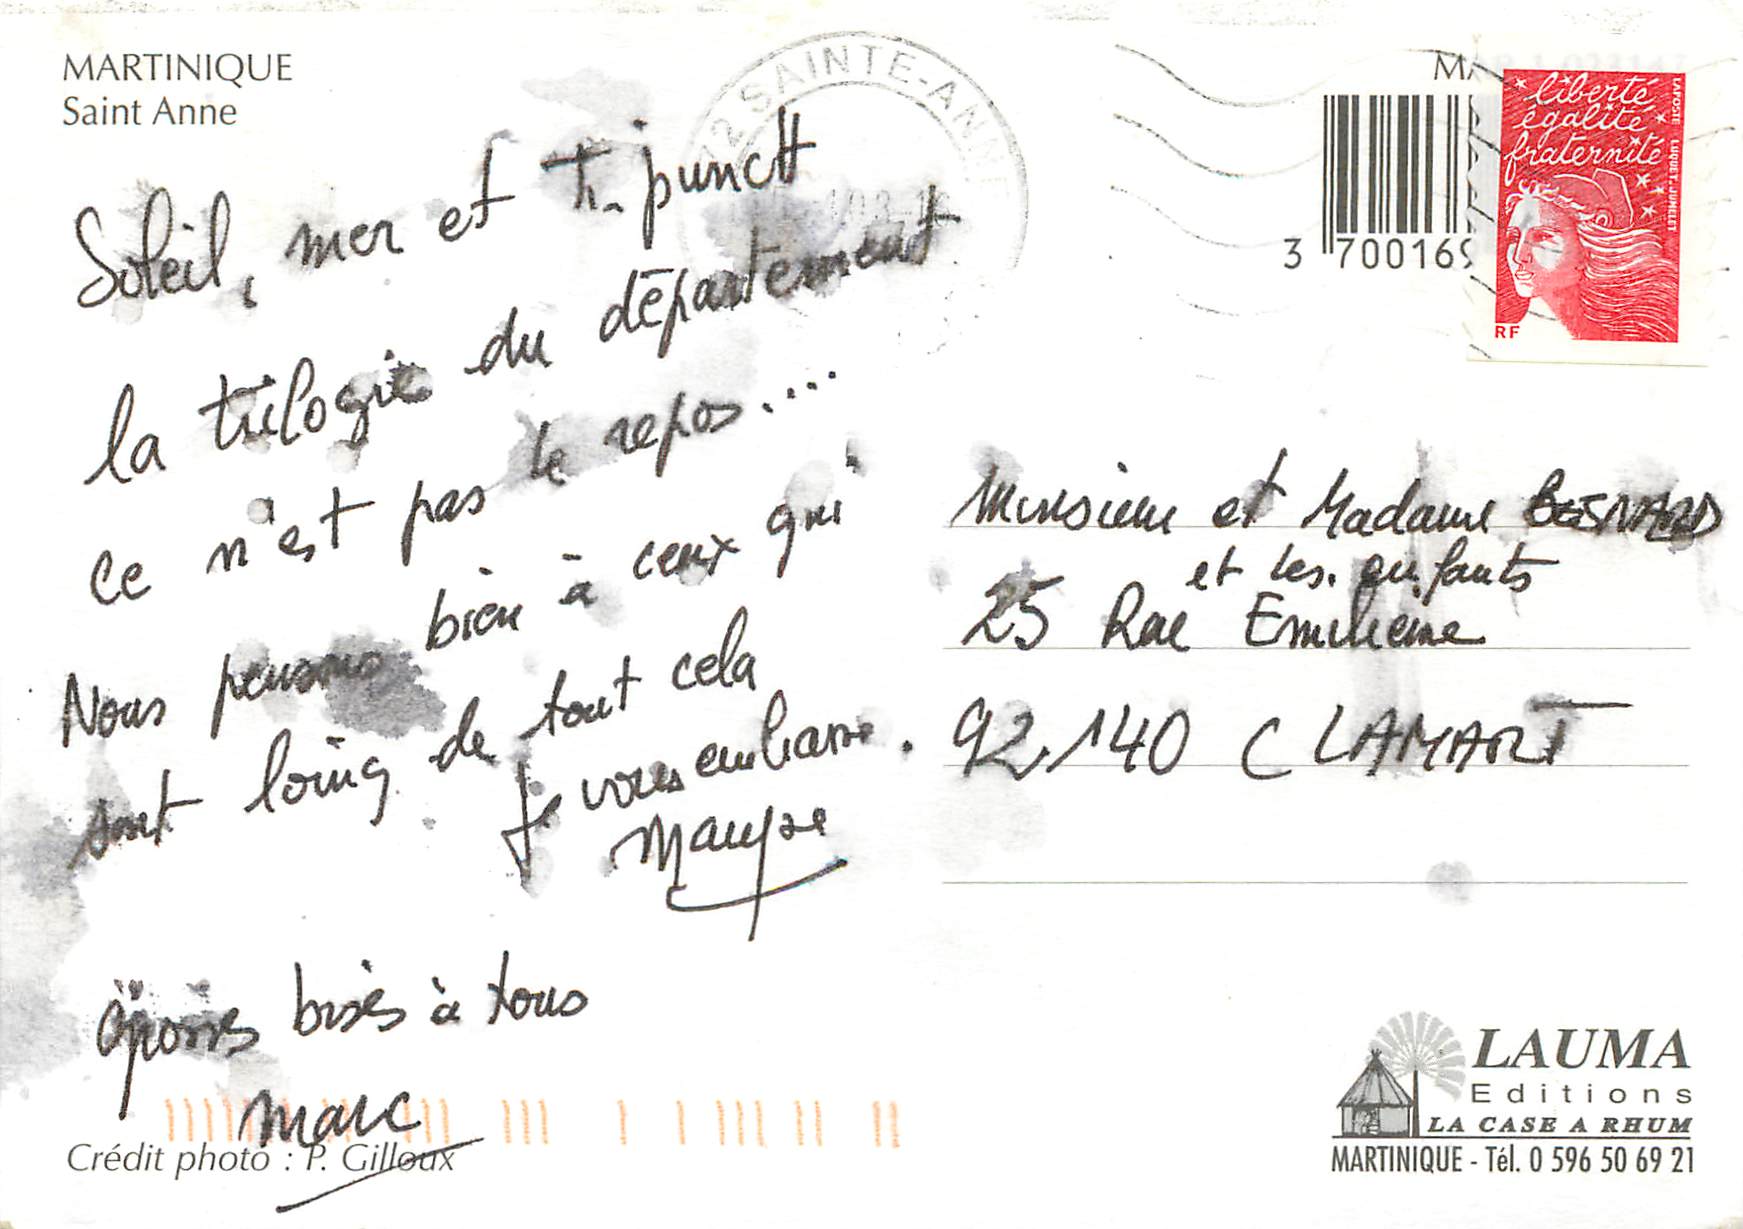 MARTINIQUE
Saint Anne
72 SAINTE-ANNE
Soleil, mer et Ti. punch
la trilogie du département
Ce n'est pas le repos....
Nous pensons bien à ceux qui
sont loing de tout cela
Je vous embrasse.
grosses bises à tous
Marc
Crédit photo : P. Gilloux
liberté
égalité
fraternité
LAPOSTE LUQUET.JUMELET
RF
3 700169
Monsieur et Madame BESNARD
et les. enfants
25 Rue Emilienne
92.140 CLAMART
LAUMA
Editions
LA CASE A RHUM
MARTINIQUE - Tél. 0 596 50 69 21